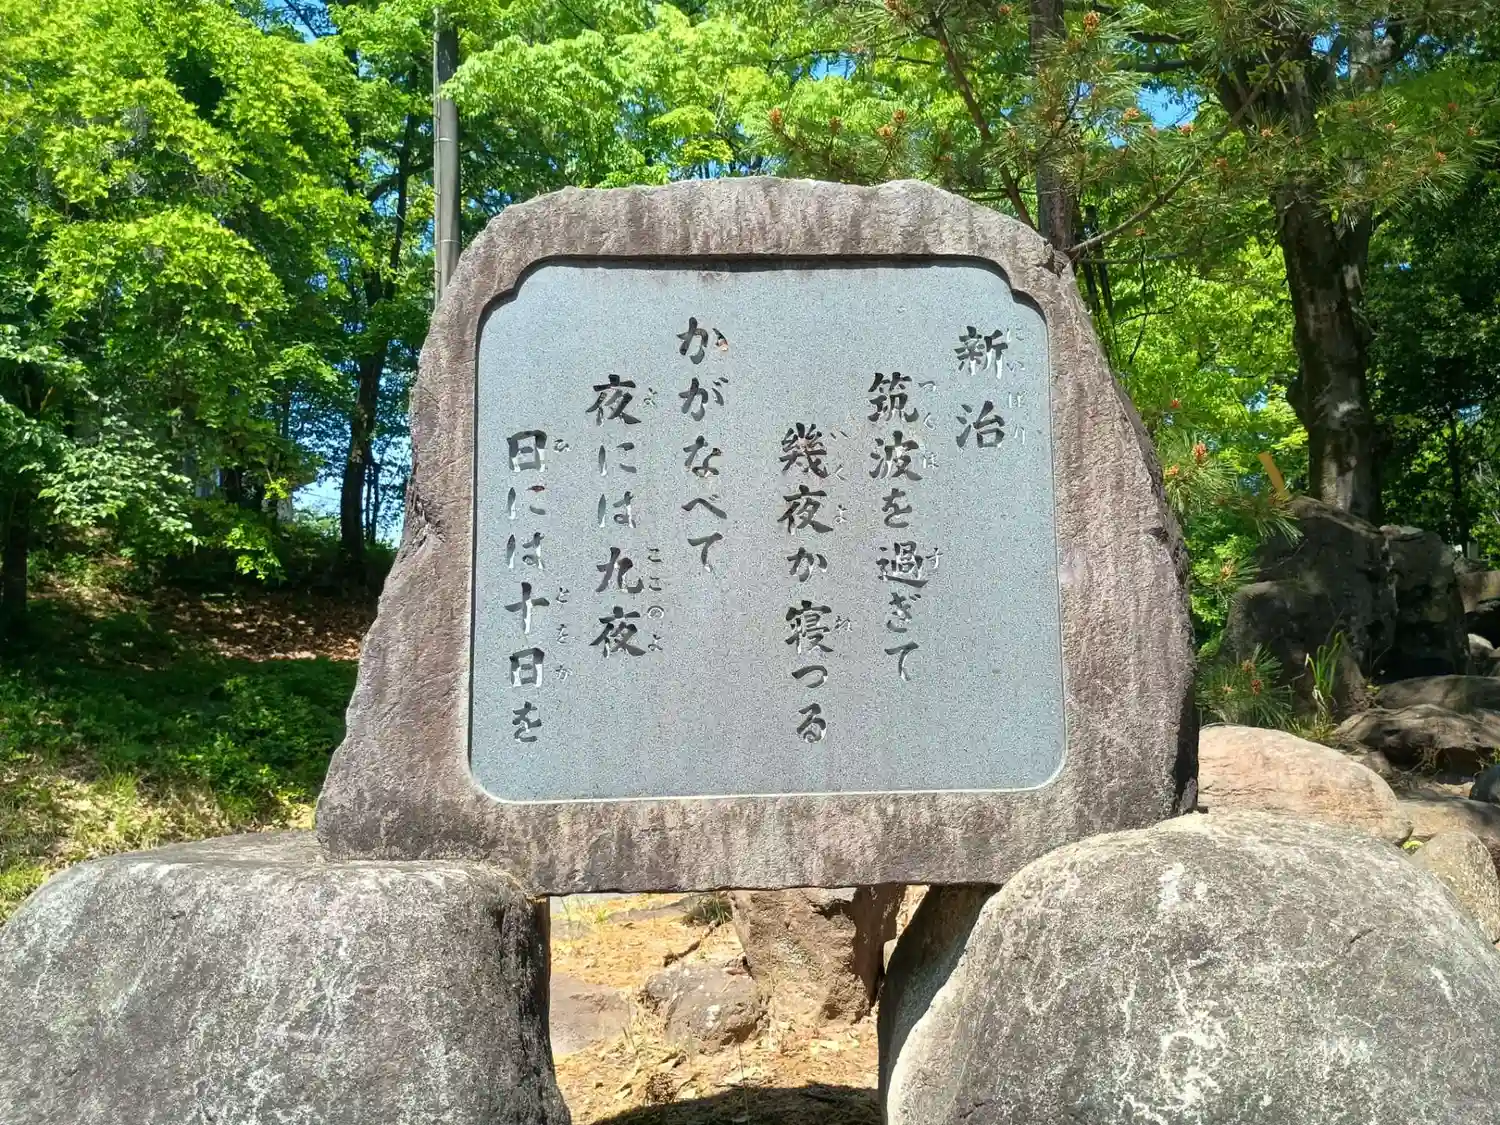 新治
にいばり
筑波を過ぎて
つくは す
幾夜か寝つる
いくよ ね
かがなべて
夜には九夜
よ ここのよ
日には十日を
ひ とをか